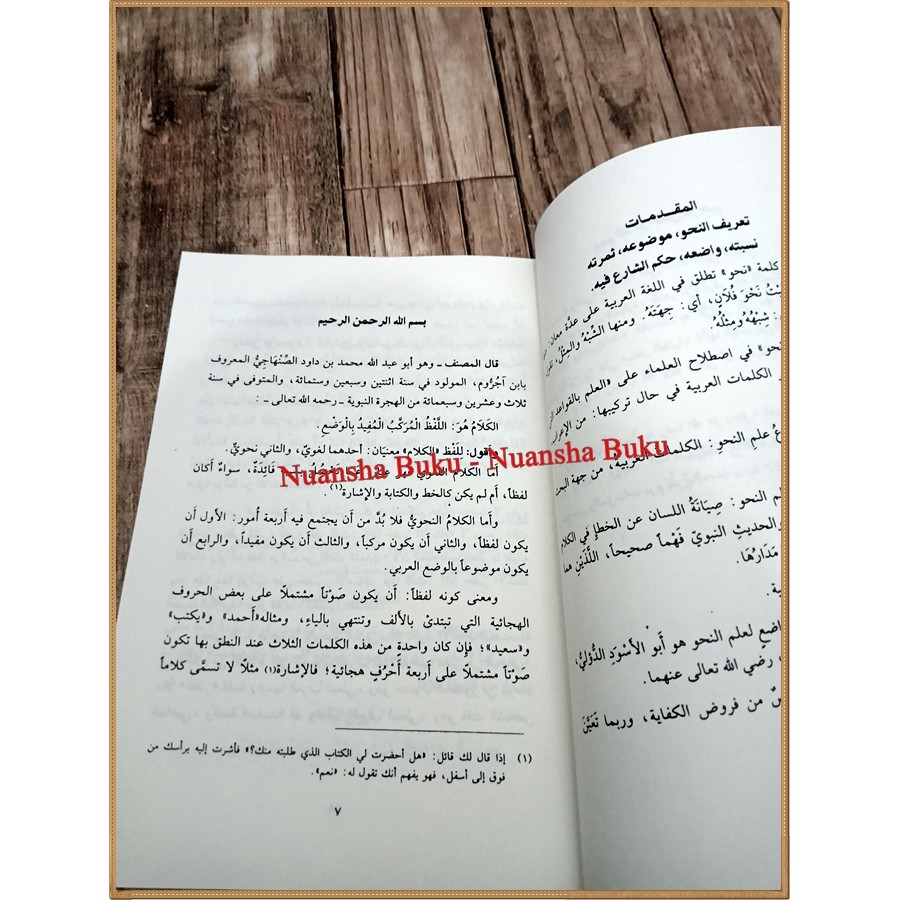 المقدمات
تعريف النحو، موضوعه، ثمرته
نسبته، واضعه، حكم الشارع فيه.
كلمة «نحو» تطلق في اللغة العربية على عدَّة معان:
نَحْوَ فُلَانٍ، أي: جِهَتَهُ. ومنها الشِّبْهُ والمِثْلُ،
شِبْهُهُ ومِثْلُهُ.
نحو» في اصطلاح العلماء على «العلم بالقواعد
الكلمات العربية في حال تركيبها: من الإعراب
علمِ النحوِ: الكلمات العربية، من جهة البحث
علم النحو: صِيَانَةُ اللسان عن الخطإ في الكلام
والحديثِ النبويّ فَهْماً صحيحاً، اللَّذَيْنِ هما
مَدَارُهَا.
لعلم النحو هو أبو الأَسْوَدِ الدُّؤَلِيُّ،
رضي الله تعالى عنهما.
من فروض الكفاية، وربما تَعَيَّنَ
بسم الله الرحمن الرحيم
قال المصنف ـ وهو أبو عبد الله محمد بن داود الصِّنْهَاجِيُّ المعروف
بابن آجُرُّوم، المولود في سنة اثنتين وسبعين وستمائة، والمتوفى في سنة
ثلاث وعشرين وسبعمائة من الهجرة النبوية ـ رحمه الله تعالى ـ:
الكَلَامُ هُوَ: اللَّفْظُ الْمُرَكَّبُ الْمُفِيدُ بِالْوَضْعِ.
وأقول: لِلَفْظ «الكلام» معنيَان: أحدهما لغويّ، والثاني نحويٌّ.
أما الكلام اللغوي فهو فَائِدَةٌ، سواءٌ أَكان
لفظاً، أم لم يكن كالخط والكتابة والإشارة(١).
وأما الكلامُ النحويُّ فلا بُدَّ من أن يجتمع فيه أربعة أُمور: الأول أن
يكون لفظاً، والثاني أن يكون مركباً، والثالث أن يكون مفيداً، والرابع أن
يكون موضوعاً بالوضع العربي.
ومعنى كونه لفظاً: أن يكون صَوْتاً مشتملاً على بعض الحروف
الهجائية التي تبتدئ بالألف وتنتهي بالياءِ، ومثاله «أَحمد» و«يكتب»
و«سعيد»؛ فإِن كان واحدةٍ من هذه الكلمات الثلاث عند النطق بها تكون
صَوْتاً مشتملاً على أربعة أَحْرُفٍ هجائية؛ فالإشارة(١) مثلاً لا تسمَّى كلاماً
(١) إذا قال لك قائل: «هل أحضرت لي الكتاب الذي طلبته منك؟» فأشرت إليه برأسك من
فوق إلى أسفل، فهو يفهم أنك تقول له: «نعم».
٧
Nuansha Buku - Nuansha Buku